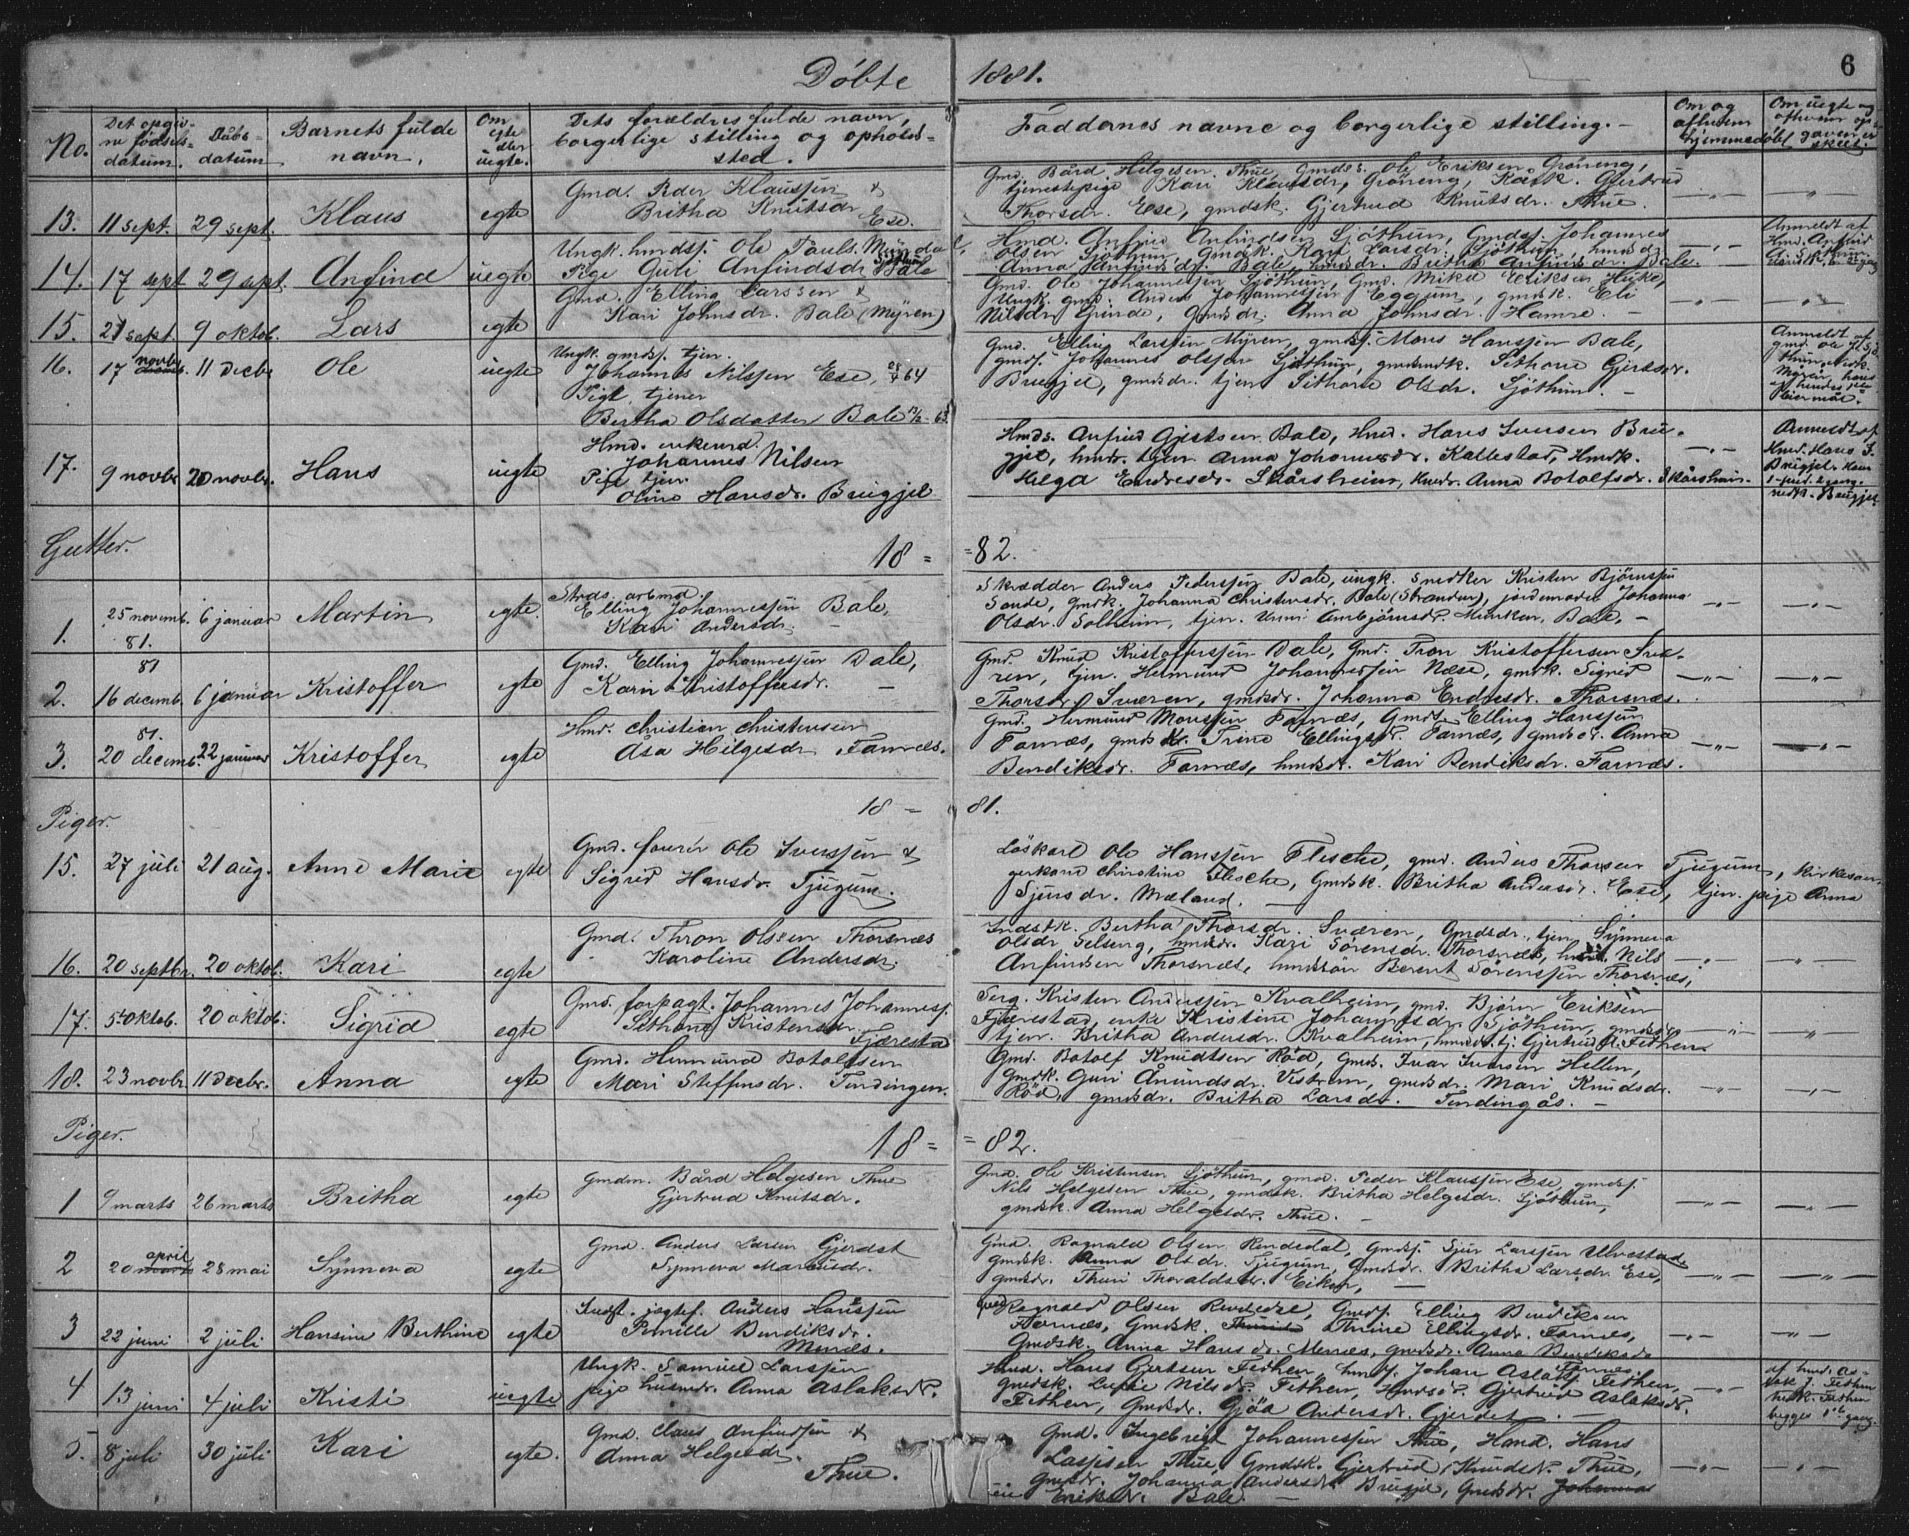 Døbte 1881. 6
No. Det opgivne fødselsdatum. Dåbsdatum. Barnets fulde navn. Om egte eller uegte. Dets forældres fulde navn, borgerlige stilling og opholdssted. Faddernes navne og borgerlige stilling. Om og afhvem hjemmedøbt
13. 11 sept. 29 sept. Klaus egte
Gmd. Peder Klaussen &
Britha Knutsdr. Ese.
Gmd. Bård Helgesen Thue, Gmdss. Ole Eriksen Grøneng,
tjenestepige Kari Klausdr. Grøneng, Gjertrud
Thorsdr. Ese, gmdsk. Gjertrud Knutsdr. Thue.
14. 17 sept 29 sept. Anfind uegte
Ungk. hmdsj. Ole Pauls. Myrdal
Pige Guri Anfindsdr. Bale
Hmd. Anfind Anfindsen Sjøthun, Gmdsj. Johannes
Olsen Sjøthun, Gmdsk. Kari Larsdr. Sjøthun, hmdsdr.
Anna Anfindsdr. Bale, hmdsdr. Britha Anfindsdr. Bale.
Anmeldt af
Hmd. Anfind
15. 21 sept. 9 oktob. Lars egte
Gmd. Elling Larssen &
Kari Johnsdr. Bale (Myren)
Gmd. Ole Johannessen Sjøthun, Gmd. Mikal Eriksen Huske,
Ungk. gmd. Anders Johannessen Eggum, gmdsk. Eli
Nilsdr. Grinde, Gmdsdr. Anna Johnsdr. Hamre.
16. 17 novbr. 11 decbr Ole uegte
Ungk. gmdsj. tjen.
Johannes Nilssen Ese, 64
Pige tjener
Bertha Olsdatter Bale 63
Gmd. Elling Larssen Myren, gmdsj. Mons Hanssen Bale,
gmdsj. Johannes Olssen Sjøthun, Sithone Gjertsdr.
Brugjel, gmdsdr. tjen. Sithone Olsdr. Sjøthun.
Anmeldt af
17. 9 novbr 20 novbr. Hans uegte
Hmd. enkemd.
Johannes Nilsen
Pige tjen.
Oline Hansdr. Brugjel
Hmds. Anfind Gjertsen Bale, Hmd. Hans Iversen Bru-
gjel, hmdr. tjen. Anna Johannesdr. Kallestad, Hmdk.
Helga Endresdr. Skårsheim, Hmdr. Anna Botolfsdr. Skårsheim.
Anmeldt af
Hmd. Hans I.
Brugjel.
Gutter. 18 = = 82.
1. 25 novemb. 81. 6 januar Martin egte.
Strds. arbmd.
Elling Johannessen Bale,
Kari Andersdr.
Skrædder Anders Pederssen Bale, ungk. snedker Kristen Bjørnssen
Sande, gmdk. Johanna Christensdr. Bale (Stranden), jordemoder Johanna
Olsdr. Solheim, tjen. Unni Ambjørnsdr. Bale,
2. 81 16 decemb. 6 januar Kristoffer egte
Gmd. Elling Johannessen Bale,
Karin Kristoffersdr.
Gmd. Knud Kristofferssen Bale, Gmd. Tron Kristoffersen Svæ-
ren, tjen. Helmund Johannessen Næse, gmdk. Sigrid
Thorsdr. Sværen, gmdsdr. Johanna Endresdr. Thorsnæs.
3. 81. 20 decemb. 22 januar Kristoffer egte
Hmd. Christian Christensen
Åsa Helgesdr. Farnæs.
Gmd. Hermund Monssen Farnæs, Gmds. Elling Hanssen
Farnæs, gmdsk. Trine Ellingsdr. Farnæs, gmdsd. Anna
Bendiksdr. Farnæs, hmdsdr. Kari Bendiksdr. Farnæs.
Piger. 18 = 81.
15. 27 juli 21 aug. Anne Marie egte
Gmd. fourer Ole Iverssen &
Sigrid Hansdr. Tjugum.
Løskarl Ole Hanssen Flesche, gmd. Anders Thorsen Tjugum, kirkesan-
gerkone Christine Flesche, Gmdsk. Britha Andersdr. Ese, tjen. pige Anna
Sjursdr. Mæland.
16. 20 septbr. 20 oktob. Kari egte
Gmd. Thron Olsen Thorsnæs
Karoline Andersdr.
Indstk. Bertha Thorsdr. Sværen, Gmdsdr. tjen. Synneva
Olsdr. Selseng, hmdsdr. Kari Sørensdr. Thorsnæs, Nils
Anfindsen Thorsnæs, hmdssøn Berent Sørenssen Thorsnæs.
17. 5 oktob. 20 oktob. Sigrid egte
Gmd. forpagt. Johannes Johannesj.
Sithone Kristensdr. Fjærestad
Serg. Kristen Anderssen Kvalheim, gmd. Bjørn Eriksen
Fjærestad, enke Kristine Johannesdr. Sjøthun, gmdsdr.
tjen. Britha Andersdr. Kvalheim, Gjertrud Fethen.
18. 23 novbr. 11 decbr. Anna egte
Gmd. Hermund Botolfsen
Mari Steffensdr. Tendingen.
Gmd. Botolf Knudtsen Rød, Gmds. Ivar Iversen Hellen,
Gmdk. Guri Ånundsdr. Vestrem, gmdsdr. Mari Knudsdr.
Rød, gmdsdr. Britha Larsdr. Tendingås.
Piger. 18 = = 82.
1 9 marts 26 marts Britha egte
Gmdm. Bård Helgesen Thue
Gjertrud Knutsdr.
Gmd. Ole Kristensen Sjøthun, gmd. Peder Klaussen Ese, gmdsj.
Nils Helgesen Thue, gmdsk. Britha Helgesdr. Sjøthun,
gmdsk. Anna Helgesdr. Thue.
2 april 20 marts 28 mai Synneva egte
Gmd. Anders Larsen Gjerdet
Synneva Mariusdr.
Gmd. Ragnald Olsen Rendedal, Gmdsj. Sjur Larssen Ulvestad
gmdsk. Anna Olsdr. Tjugum, Gmdsdr. Britha Larsdr. Ese,
gmdsdr. Thuri Thoraldsdr. Eiken,
3 22 juni 2 juli Hansine Berthine egte
Indst. jagtef. Anders Hanssen
Pernille Bendiksdr.
Menæs.
Gmd. Ragnald Olsen Rendedal, Gmdsj. Elling Bendiksen
Farnæs, Gmdsk. Thrine Ellingsdr. Farnæs,
Gmdsk. Anna Hansdr. Menæs, gmdsdr. Anna Bendiksdr.
Farnæs.
4 13 juni 4 juli Kristi uegte
Ungk. Samuel Larssen
pige husmdr. Anna Aslaksdr.
Hmd. Hans Gjertsen Fethen, hmdsj. Johan Aslaksj. Fethen,
gmdsk. Lussie Nilsdr. Fethen, Hmdsdr. Gjertrud Aslaksdr.
Fethen, Gmdsdr. Gjøa Andersdr. Gjerdet.
af hmd. As-
lak J. Fethen
begges 1ste gang.
5. 8 juli 30 juli Kari egte.
Gmd. Claus Anfindsen &
Anna Helgesdr.
Thue.
Gmd. Ingebrigt Johannessen Thue, Hmd. Hans
Lassesen Thue, Gmdsk. Gjertrud Knudsdr. Thue,
Gmdsdr. Johanna Andersdr. Brugjel, Gmdsdr. Johannes
Eriksdr. Bale.